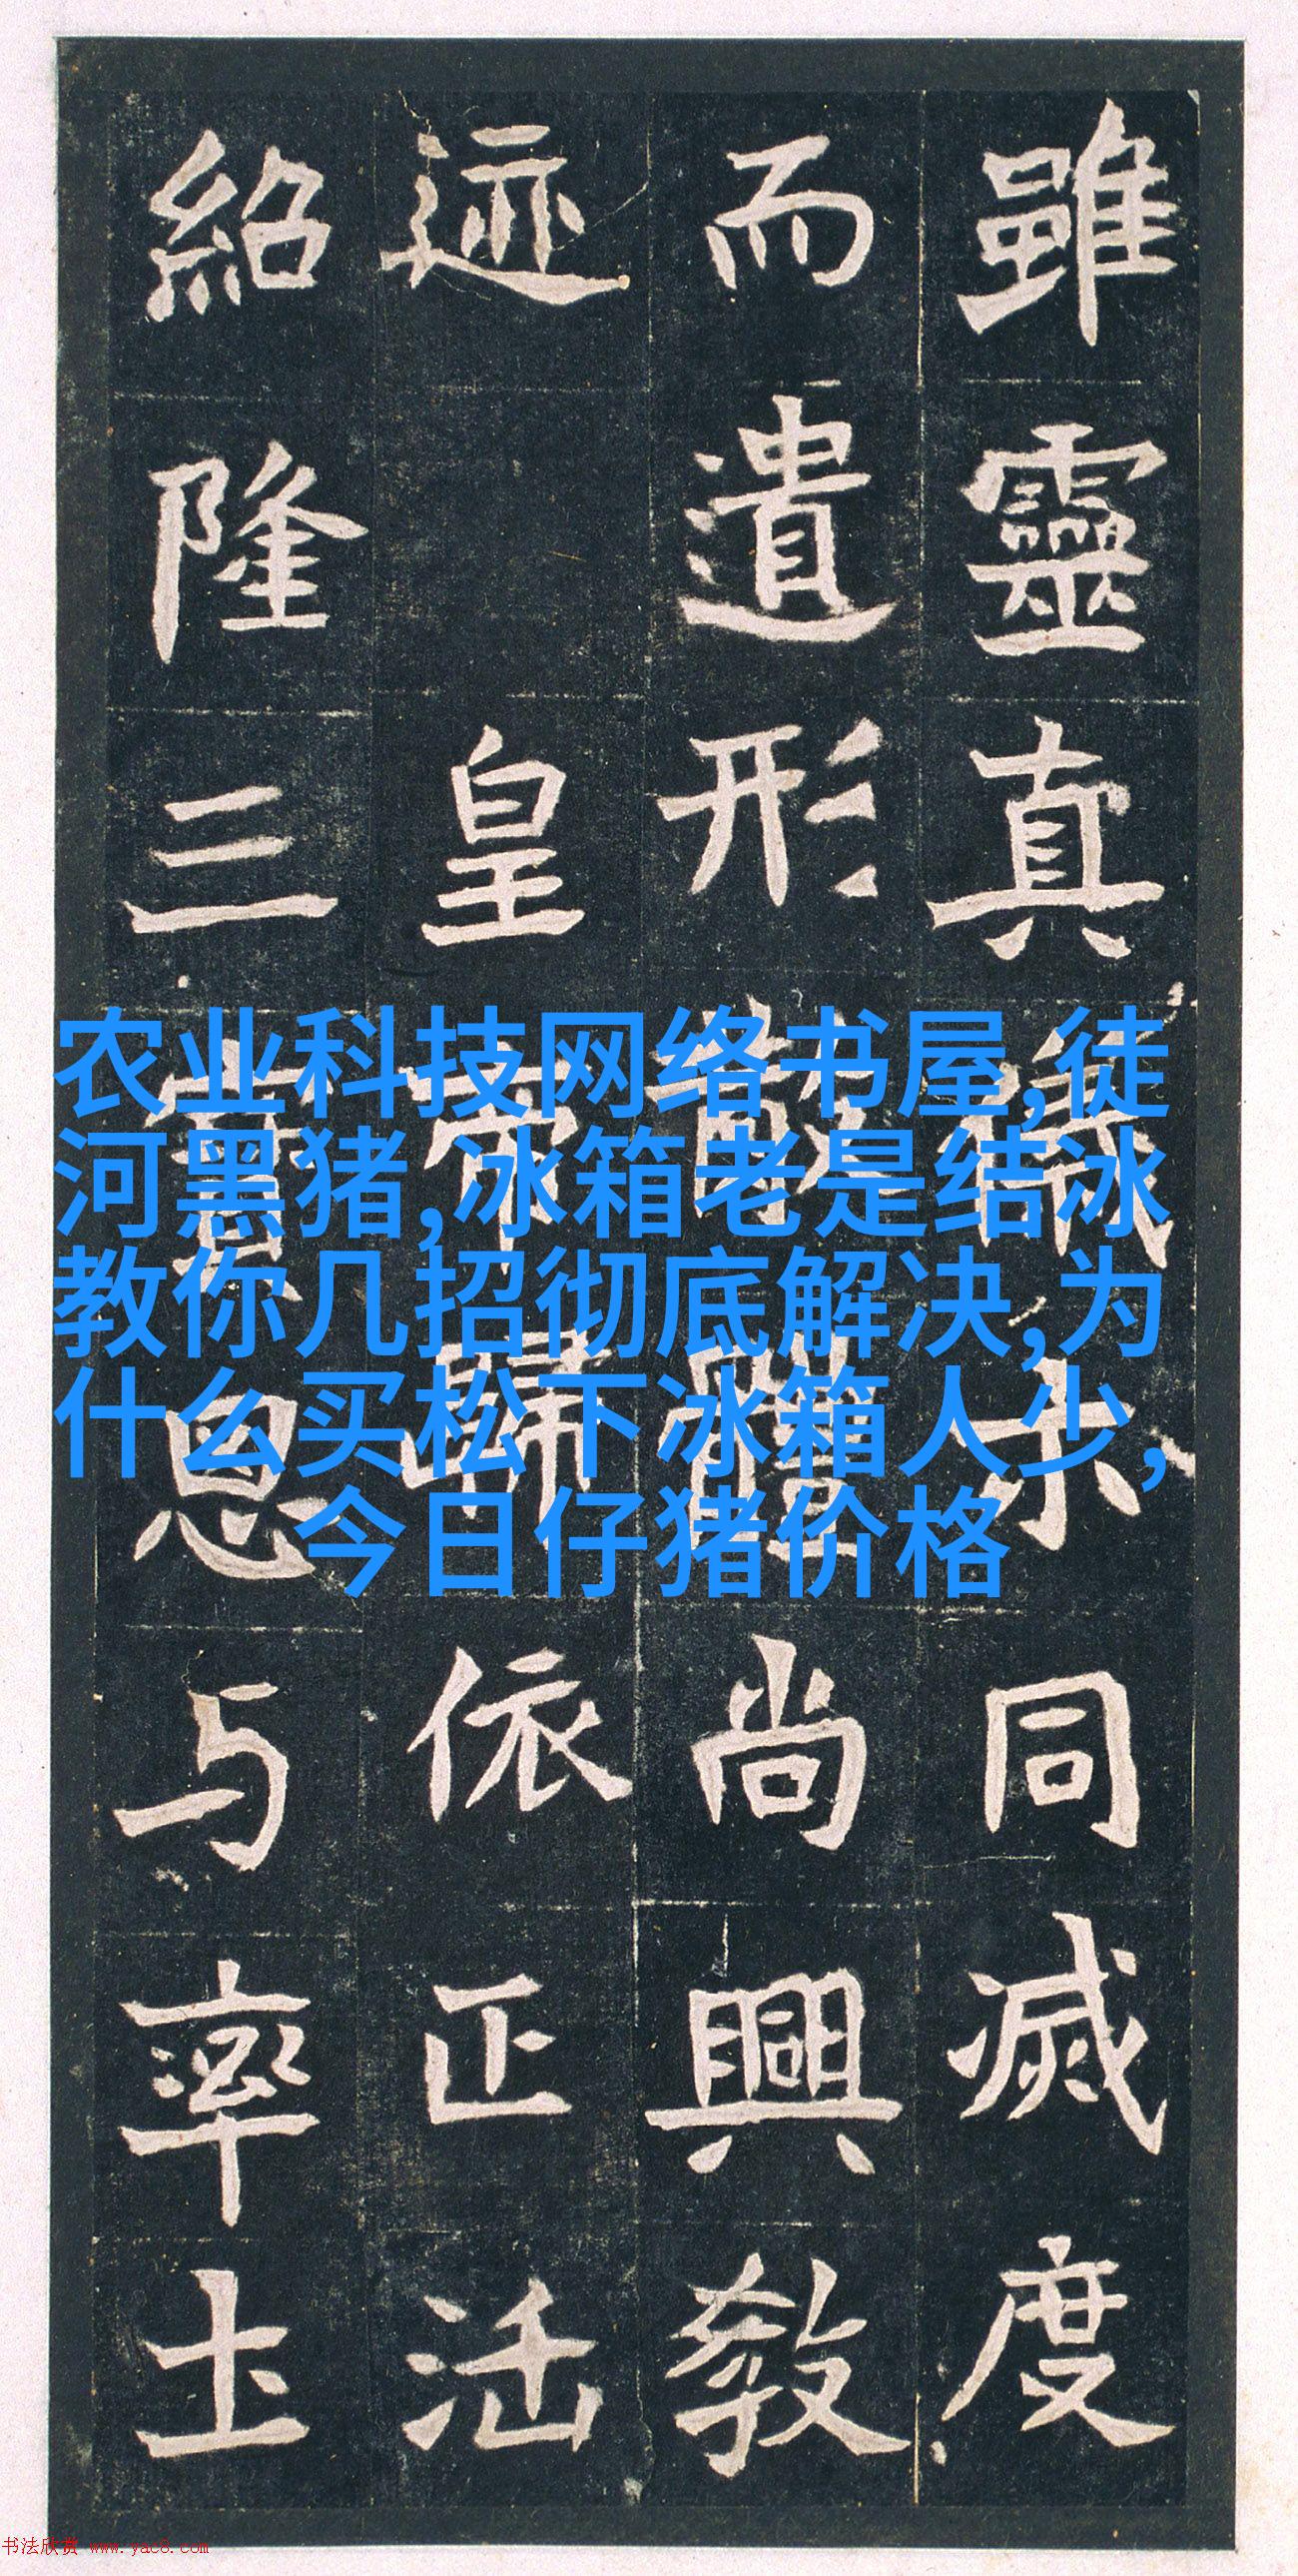 雖靈真儀同滅度
而遺形體尚興教
迹皇帝歸依正法
紹隆三恩与率土
农业科技网络书屋,徒
河黑猪,冰箱老是结冰
教你几招彻底解决,为
什么买松下冰箱人少,
今日仔猪价格
书法欣赏 www.yac8.com